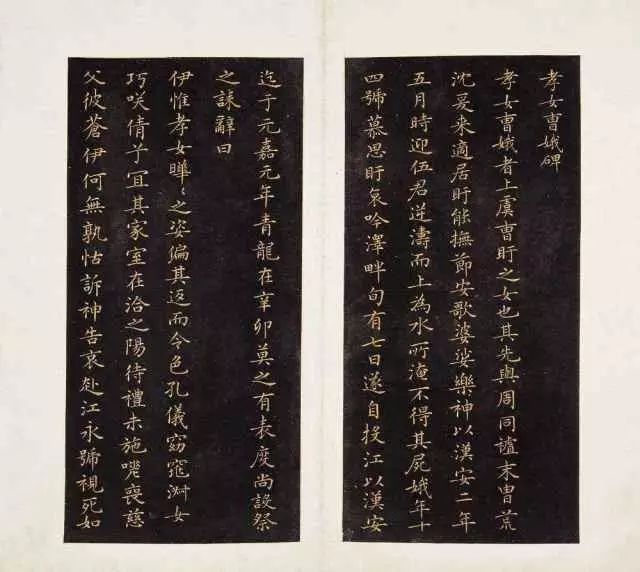 孝女曹娥碑
孝女曹娥者上虞曹盱之女也其先與周同譜末冑荒
沈爰来適居盱能撫節安歌婆娑樂神以漢安二年
五月時迎伍君逆濤而上為水所淹不得其屍娥年十
四號慕思盱哀吟澤畔旬有七日遂自投江以漢安
迄于元嘉元年青龍在辛卯莫之有表度尚設祭
之誄辭曰
伊惟孝女曄〻之姿偏其返而令色孔儀窈窕淑女
巧咲倩兮宜其家室在洽之陽待禮未施嗟喪慈
父彼蒼伊何無孰怙訴神告哀赴江永號視死如